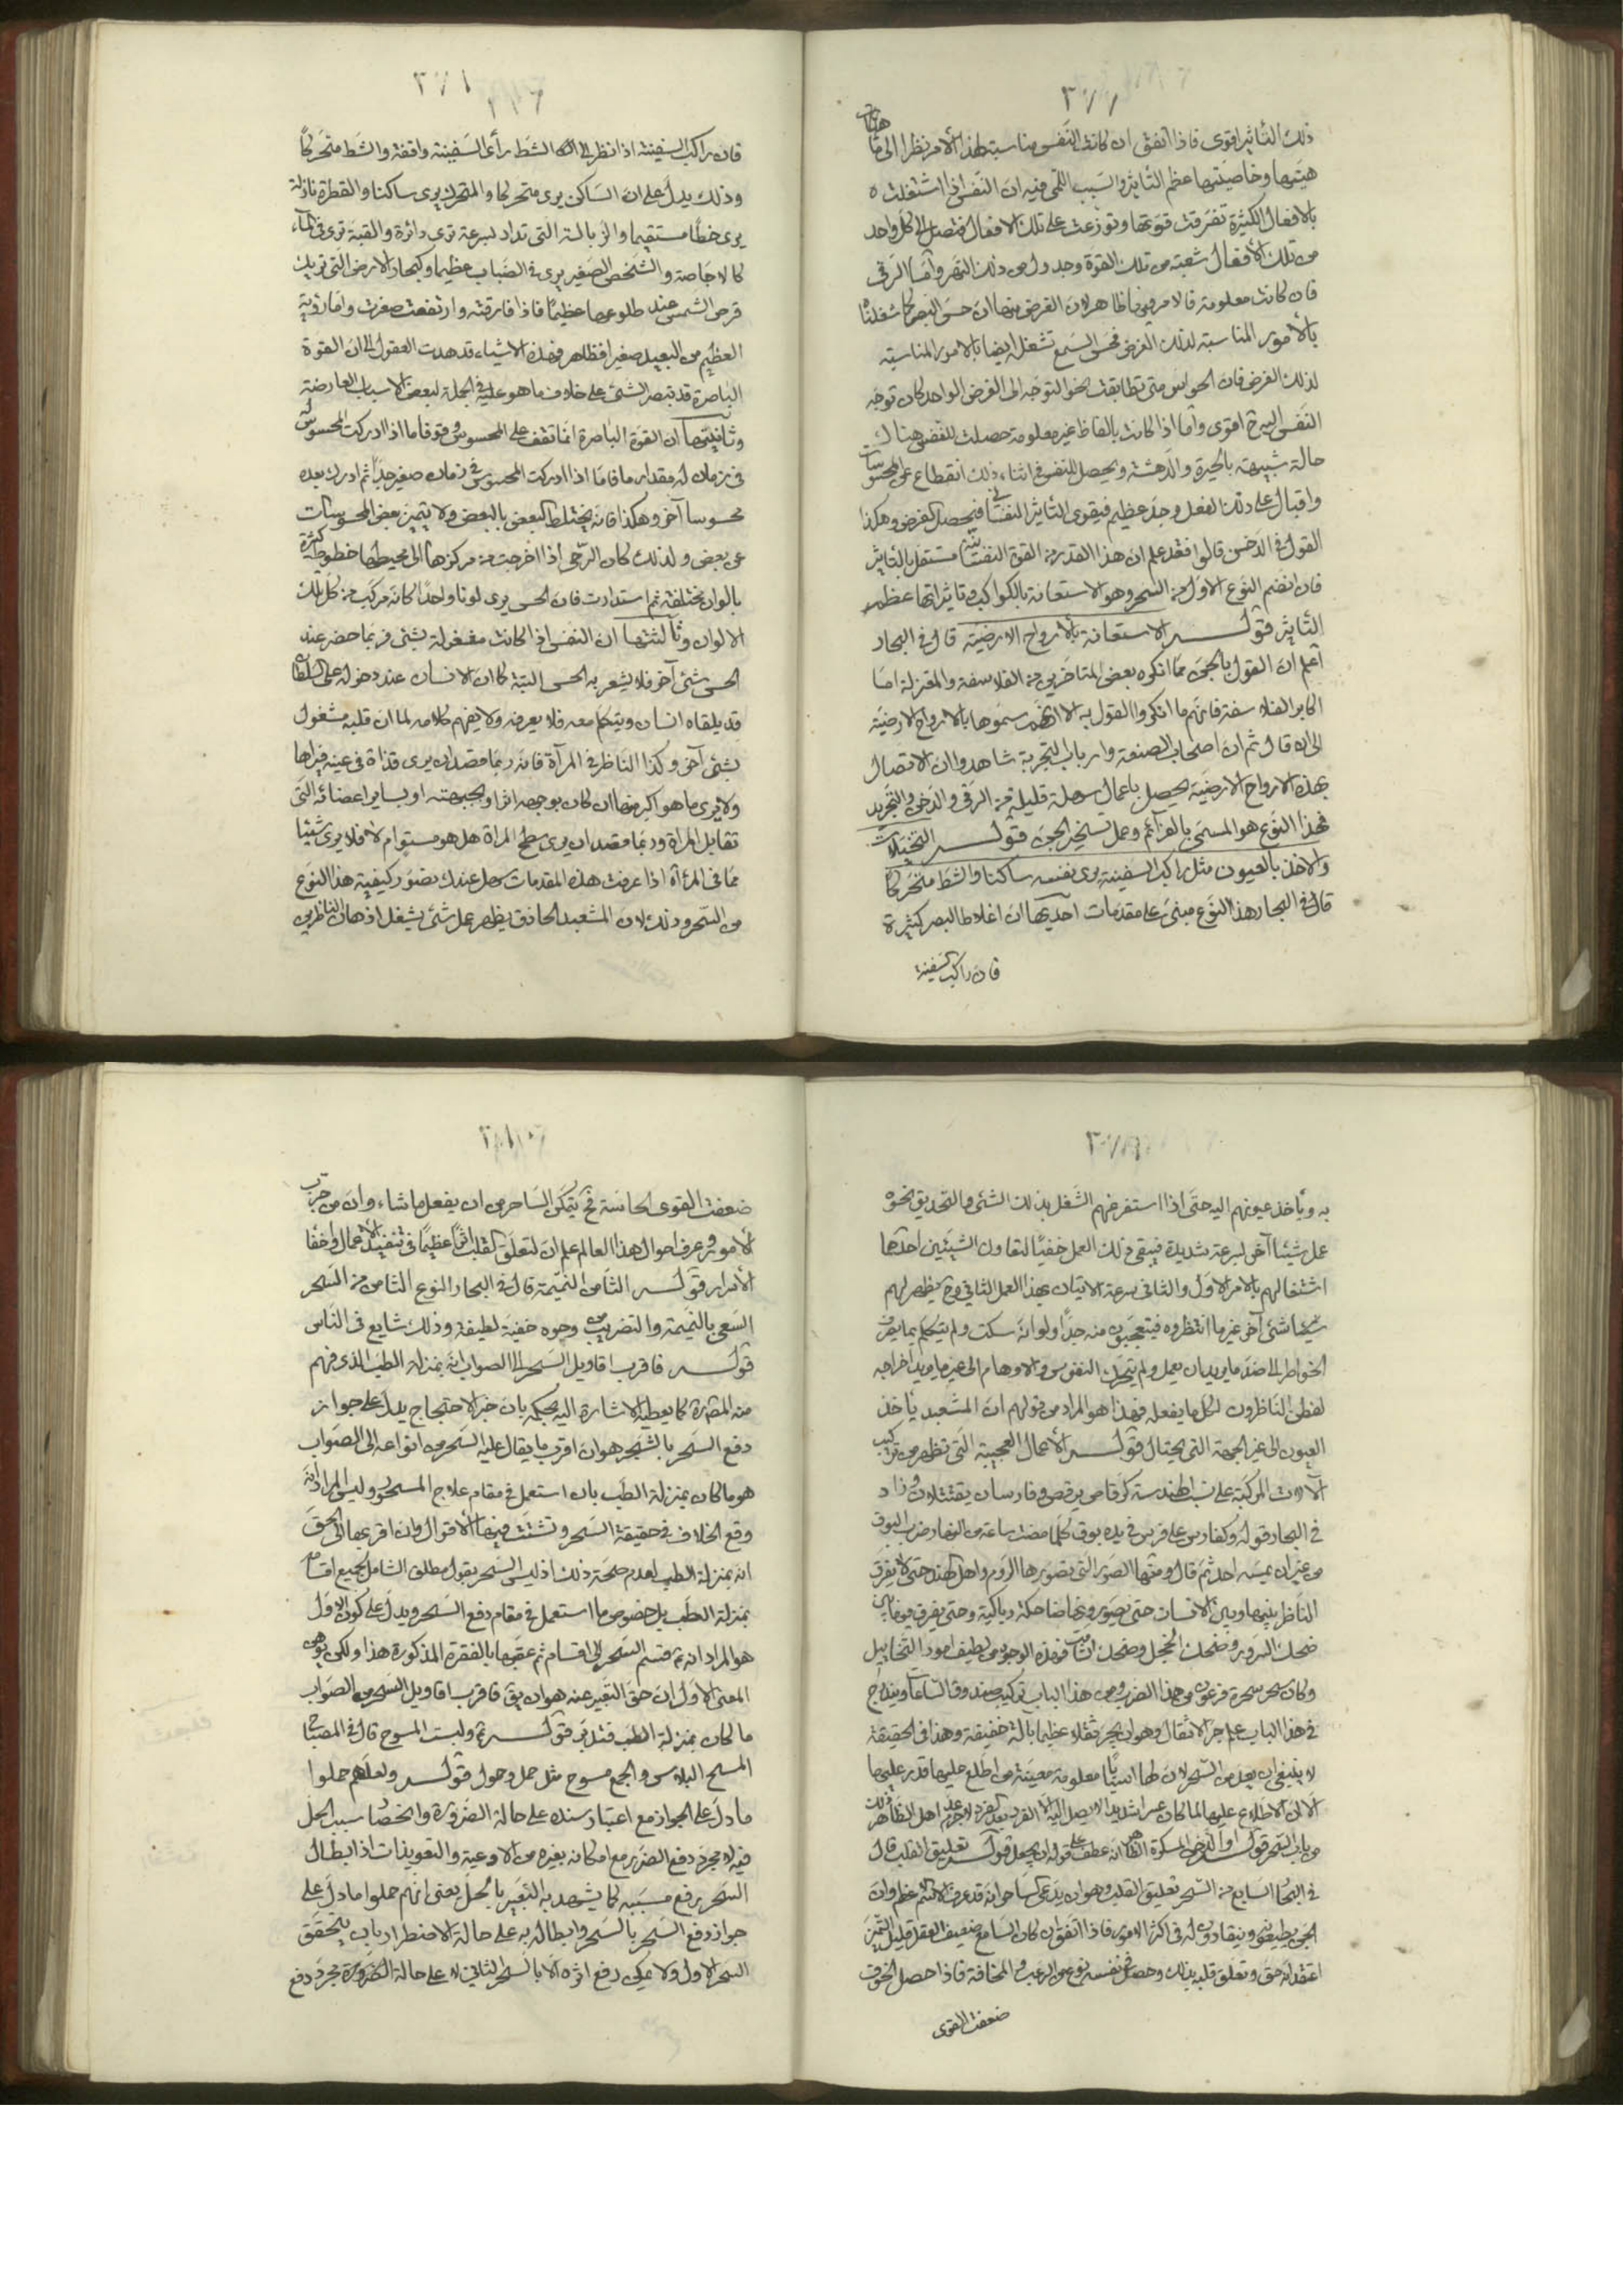 ٣٧٧
ذلك التاثير اقوى فاذا اتفق ان كانت النفس مناسبة لهذا الأمر نظرا الى ماهياتها
هيئتها وخاصيتها عظم التاثير والسبب اللمّى فيه ان النفس اذا اشتغلت
بالافعال الكثيرة تفرقت قوتها وتوزعت على تلك الافعال فتصل الى كل واحد
من تلك الأفعال شعبة من تلك القوة وجدول من ذلك النهر وأما الرقى
فان كانت معلومة فالامر فيها ظاهر لان الغرض منها ان حس البصر كما شغلناه
بالأمور المناسبة لذلك الغرض فحس السمع تشغله ايضا بالامور المناسبة
لذلك الغرض فان الحواس متى تطابقت نحو التوجه الى الغرض الواحد كان توجه
النفس اليه ح اقوى وأما اذا كانت بالفاظ غير معلومة حصلت للنفس هناك
حالة شبيهة بالحيرة والدهشة ويحصل للنفس فى اثناء ذلك انقطاع عن المحسوسات
واقبال على ذلك الفعل وجد عظيم فيقوى التأثير النفسانى فيحصل الغرض وهكذا
القول فى الدخن قالوا فقد علم ان هذا القدر من القوة النفسانية مستقل بالتأثير
فان انضم النوع الاول من السحر وهو الاستعانة بالكواكب وتاثيراتها عظم
التأثير قوله الاستعانة بالأرواح الارضية قال فى البحار
اعلم ان القول بالجن مما انكره بعض المتأخرين من الفلاسفة والمعتزلة اما
اكابر الفلاسفة فانهم ما انكروا القول به الا انهم سموها بالارواح الارضية
الى ان قال ثم ان اصحاب الصنعة وارباب التجربة شاهدوا ان الاتصال
بهذه الارواح الارضية يحصل باعمال سهلة قليلة من الرقى والدخن والتجريد
فهذا النوع هو المسمى بالعزائم وعمل تسخير الجن قوله التخيلات
والاخذ بالعيون مثل راكب السفينة يرى نفسه ساكنا والشط متحركا
قال فى البحار هذا النوع مبنى على مقدمات احديها ان اغلاط البصر كثيرة
فان راكب السفينة
٣٧٨
فان راكب السفينة اذا نظر الى الشط رأى السفينة واقفة والشط متحركا
وذلك يدل على ان الساكن يرى متحركا والمتحرك يرى ساكنا والقطرة نازلة
يرى خطا مستقيما والذبالة التى تدار بسرعة ترى دائرة والعنبة ترى فى الماء
كالاجاصة والشخص الصغير يرى فى الضباب عظيما وكبخار الارض التى تريك
قرص الشمس عند طلوعها عظيما فاذا فارقته وارتفعت صغرت واما رؤية
العظيم من البعيد صغيرا فظاهر فهذه الاشياء قد هدت العقول الى ان القوة
الباصرة قد تبصر الشئ على خلاف ما هو عليه فى الجملة لبعض الاسباب العارضة
وثانيتها ان القوة الباصرة انما تقف على المحسوس وقوفا ما اذا ادركت المحسوس
فى زمان له مقدار ما فاما اذا ادركت المحسوس فى زمان صغير جدا ثم ادرك بعده
محسوسا آخر وهكذا فانه يختلط البعض بالبعض ولا يتميز بعض المحسوسات
عن بعض ولذلك كان الرحى اذا اخرجت من مركزها الى محيطها خطوط كثيرة
بالوان مختلفة ثم استدارت فان الحس يرى لونا واحدا كانه مركب من كل تلك
الالوان وثالثتها ان النفس اذا كانت مشغولة بشئ فربما حضر عند
الحس شئ آخر فلا يشعر به الحس البتة كما ان الانسان عند دخوله على السلطان
قد يلقاه انسان ويتكلم معه فلا يعرفه ولا يفهم كلامه لما ان قلبه مشغول
بشئ آخر وكذا الناظر فى المرآة فانه ربما قصد ان يرى قذاة فى عينه فيراها
ولا يرى ما هو اكبر منها ان كان بوجهه اثر او بجبهته او بساير اعضائه التى
تقابل المراة وربما قصد ان يرى سطح المراة هل هو مستو ام لا فلا يرى شيئا
مما فى المرآة اذا عرفت هذه المقدمات سهل عندك تصور كيفية هذا النوع
من السحر وذلك لان المشعبد الحاذق يظهر عمل شئ يشغل اذهان الناظرين
٣٧٩
به وياخذ عيونهم اليه حتى اذا استفرغهم الشغل بذلك الشئ والتحديق نحوه
عمل شيئا آخر بسرعة شديدة فيبقى ذلك العمل خفيا لتعاون الشيئين احدهما
اشتغالهم بالامر الاول والثانى سرعة الاتيان بهذا العمل الثانى وح يظهر لهم
شئ آخر غير ما انتظروه فيتعجبون منه جدا ولو انه سكت ولم يتكلم بما يصرف
الخواطر الى ضد ما يريد ان يعمل ولم يتحرك النفوس والاوهام الى غير ما يريد اخراجه
لفطن الناظرون لكل ما يفعله فهذا هو المراد من قولهم ان المشعبد ياخذ
العيون الى غير الجهة التى يحتال قوله الأعمال العجيبة التى تظهر من تركيب
الآلات المركبة على نسب الهندسة كرقاص يرقص وفارسان يقتتلان وزاد
فى البحار قوله وكفارس على فرس فى يده بوق كلما مضت ساعة من النهار ضرب البوق
من غير ان يمسه احد ثم قال ومنها الصور التى تصورها الروم واهل الهند حتى لا يفرق
الناظر بينها وبين الانسان حتى يصورونها ضاحكة وباكية وحتى يفرق فيها بين
ضحك السرور وضحك الخجل وضحك الشامت فهذه الوجوه من لطيف امور التخاييل
وكان سحر سحرة فرعون من هذا الضرب ومن هذا الباب تركيب صندوق الساعات ويندرج
فى هذا الباب علم جر الاثقال وهو ان يجر ثقلا عظيما بالة خفيفة وهذا فى الحقيقة
لا ينبغى ان يعد من السحر لان لها اسبابا معلومة معينة من اطلع عليها قدر عليها
الا ان الاطلاع عليها لما كان عسرا شديدا لا يصل اليه الا الفرد بعد الفرد لا جرم عد اهل الظاهر ذلك
من باب السحر قوله او الدخن المسكرة الظاهر انه عطف على قوله ان يجعل قوله تعليق القلب قال
فى البحار السابع من السحر تعليق القلب وهو ان يدعى الساحر انه قد عرف الاسم الاعظم وان
الجن يطيعونه وينقادون له فى اكثر الامور فاذا اتفق ان كان السامع ضعيف العقل قليل التميز
اعتقد انه حق وتعلق قلبه بذلك وحصل فى نفسه نوع من الرعب والمخافة فاذا حصل الخوف
ضعفت القوى
ضعفت القوى الحاسة فح يتمكن الساحر من ان يفعل ما شاء وان من جرب
الأمور وعرف احوال هذا العالم علم ان لتعلق القلب اثرا عظيما فى تنفيذ الأعمال واخفاء
الأسرار قوله الثامن النميمة قال فى البحار النوع الثامن من السحر
السعى بالنميمة والتضريب من وجوه خفية لطيفة وذلك شايع فى الناس
قوله فاقرب اقاويل السحر الى الصواب انه بمنزلة الطب الذى فهم
منه المضرة كما يعطيه الاشارة اليه بحكمه بان خبر الاحتجاج يدل على جواز
دفع السحر بالسحر هو ان اقرب ما يقال عليه السحر من انواعه الى الصواب
هو ما كان بمنزلة الطب بان استعمل فى مقام علاج المسحور وليس المراد انه
وقع الخلاف فى حقيقة السحر وتشتت فيها الأقوال وان اقربها الى الحق
انه بمنزلة الطب لعدم صحة ذلك اذ ليس السحر بقول مطلق الشامل لجميع اقسامه
بمنزلة الطب بل خصوص ما استعمل فى مقام دفع السحر ويدل على كون الاول
هو المراد انه ع قسم السحر الى اقسام ثم عقبها بالفقرة المذكورة هذا ولكن يوهن
المعنى الاول ان حق التعبير عنه هو ان يق فاقرب اقاويل السحر من الصواب
ما كان بمنزلة الطب فتدبر قوله ع ولبست المسوح قال فى المصباح
المسح البلاس والجمع مسوح مثل حمل وحمول قوله ولعلهم حملوا
ما دل على الجواز مع اعتبار سنده على حالة الضرورة وانحصار سبب الحل
فيه لا مجرد دفع الضرر مع امكانه بغيره من الادعية والتعويذات اذ ابطال
السحر برفع مسببه كما يشهد به التعبير بالحل يعنى انهم حملوا ما دل على
جواز دفع السحر بالسحر وابطاله به على حالة الاضطرار بان يتحقق
السحر الاول ولا يمكن رفع اثره الا بالسحر الثانى لا على حالة الضرورة مجرد دفع